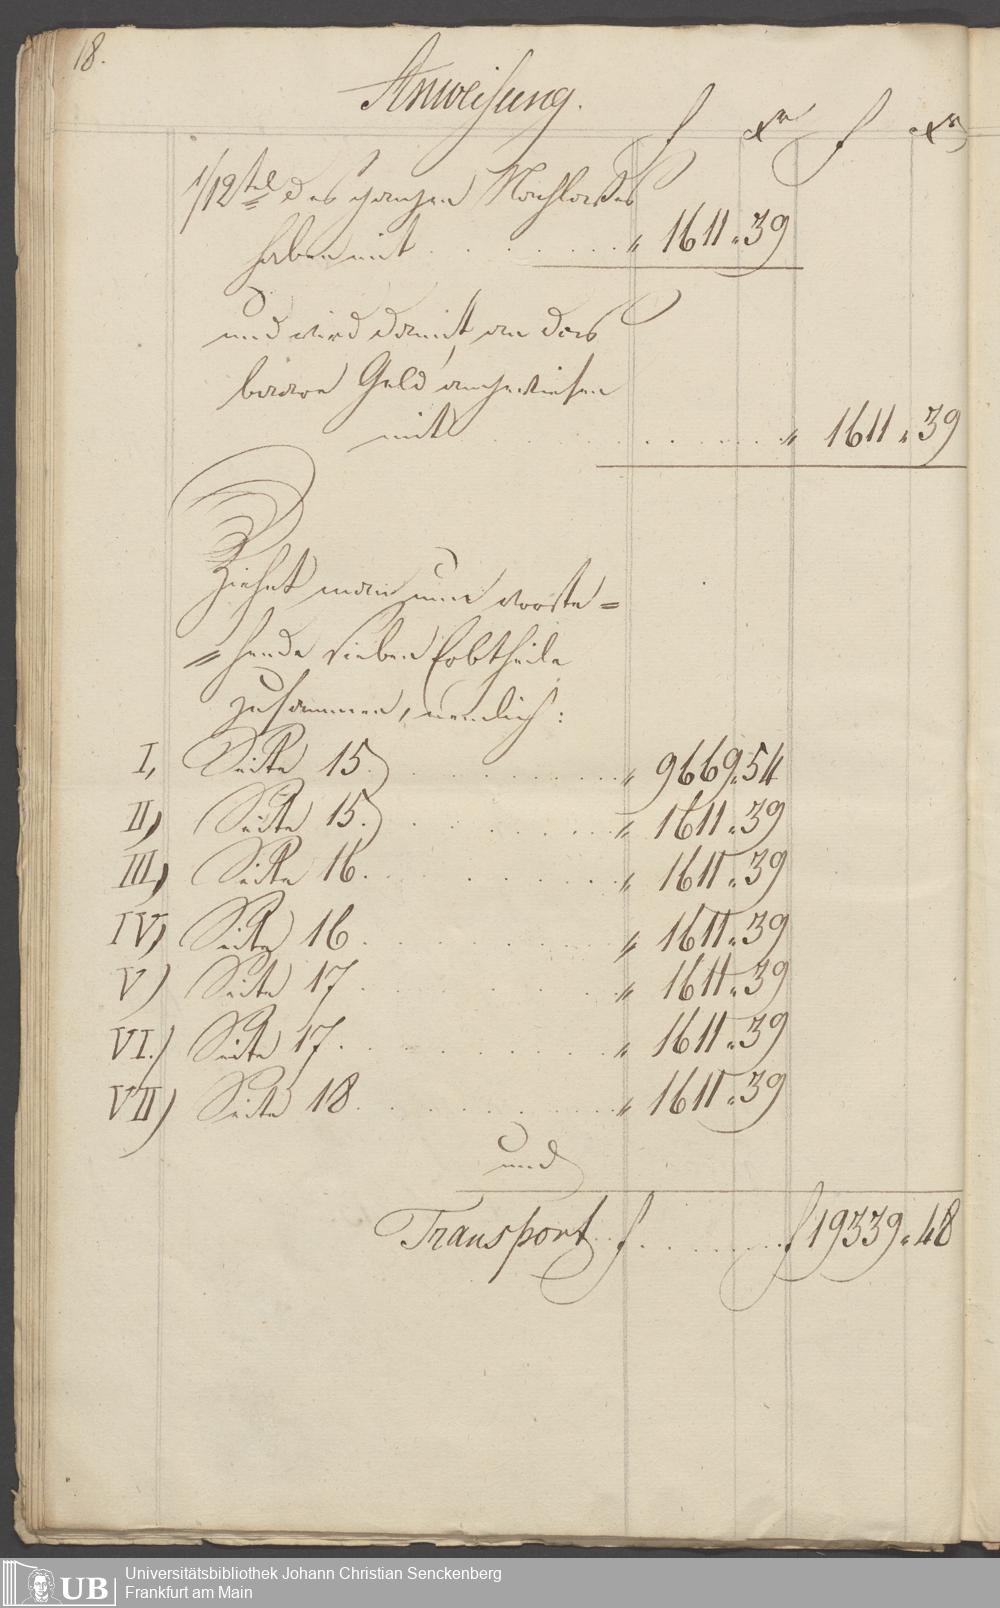 18.
Anweisung.
f xr f xr
1/12tel des ganzen Nachlaßes
haben mit . . . . . . . " 1611 " 39
und wird damit, an das
baare Geld angewiesen
mit . . . . . . . " 1611 " 39
Ziehet man nun vorste=
"hende sieben Erbtheile
zusammen, nemlich:
I, Seite 15. . . . . . . . " 9669 " 54
II) Seite 15. . . . . . . . " 1611 " 39
III) Seite 16. . . . . . . . " 1611 " 39
IV) Seite 16 . . . . . . . " 1611 " 39
V) Seite 17 . . . . . . . " 1611 " 39
VI.) Seite 17. . . . . . . . " 1611 " 39
VII) Seite 18 . . . . . . . " 1611 " 39
und
Transport f . . . . . . . f 19339 " 48
UB
Universitätsbibliothek Johann Christian Senckenberg
Frankfurt am Main